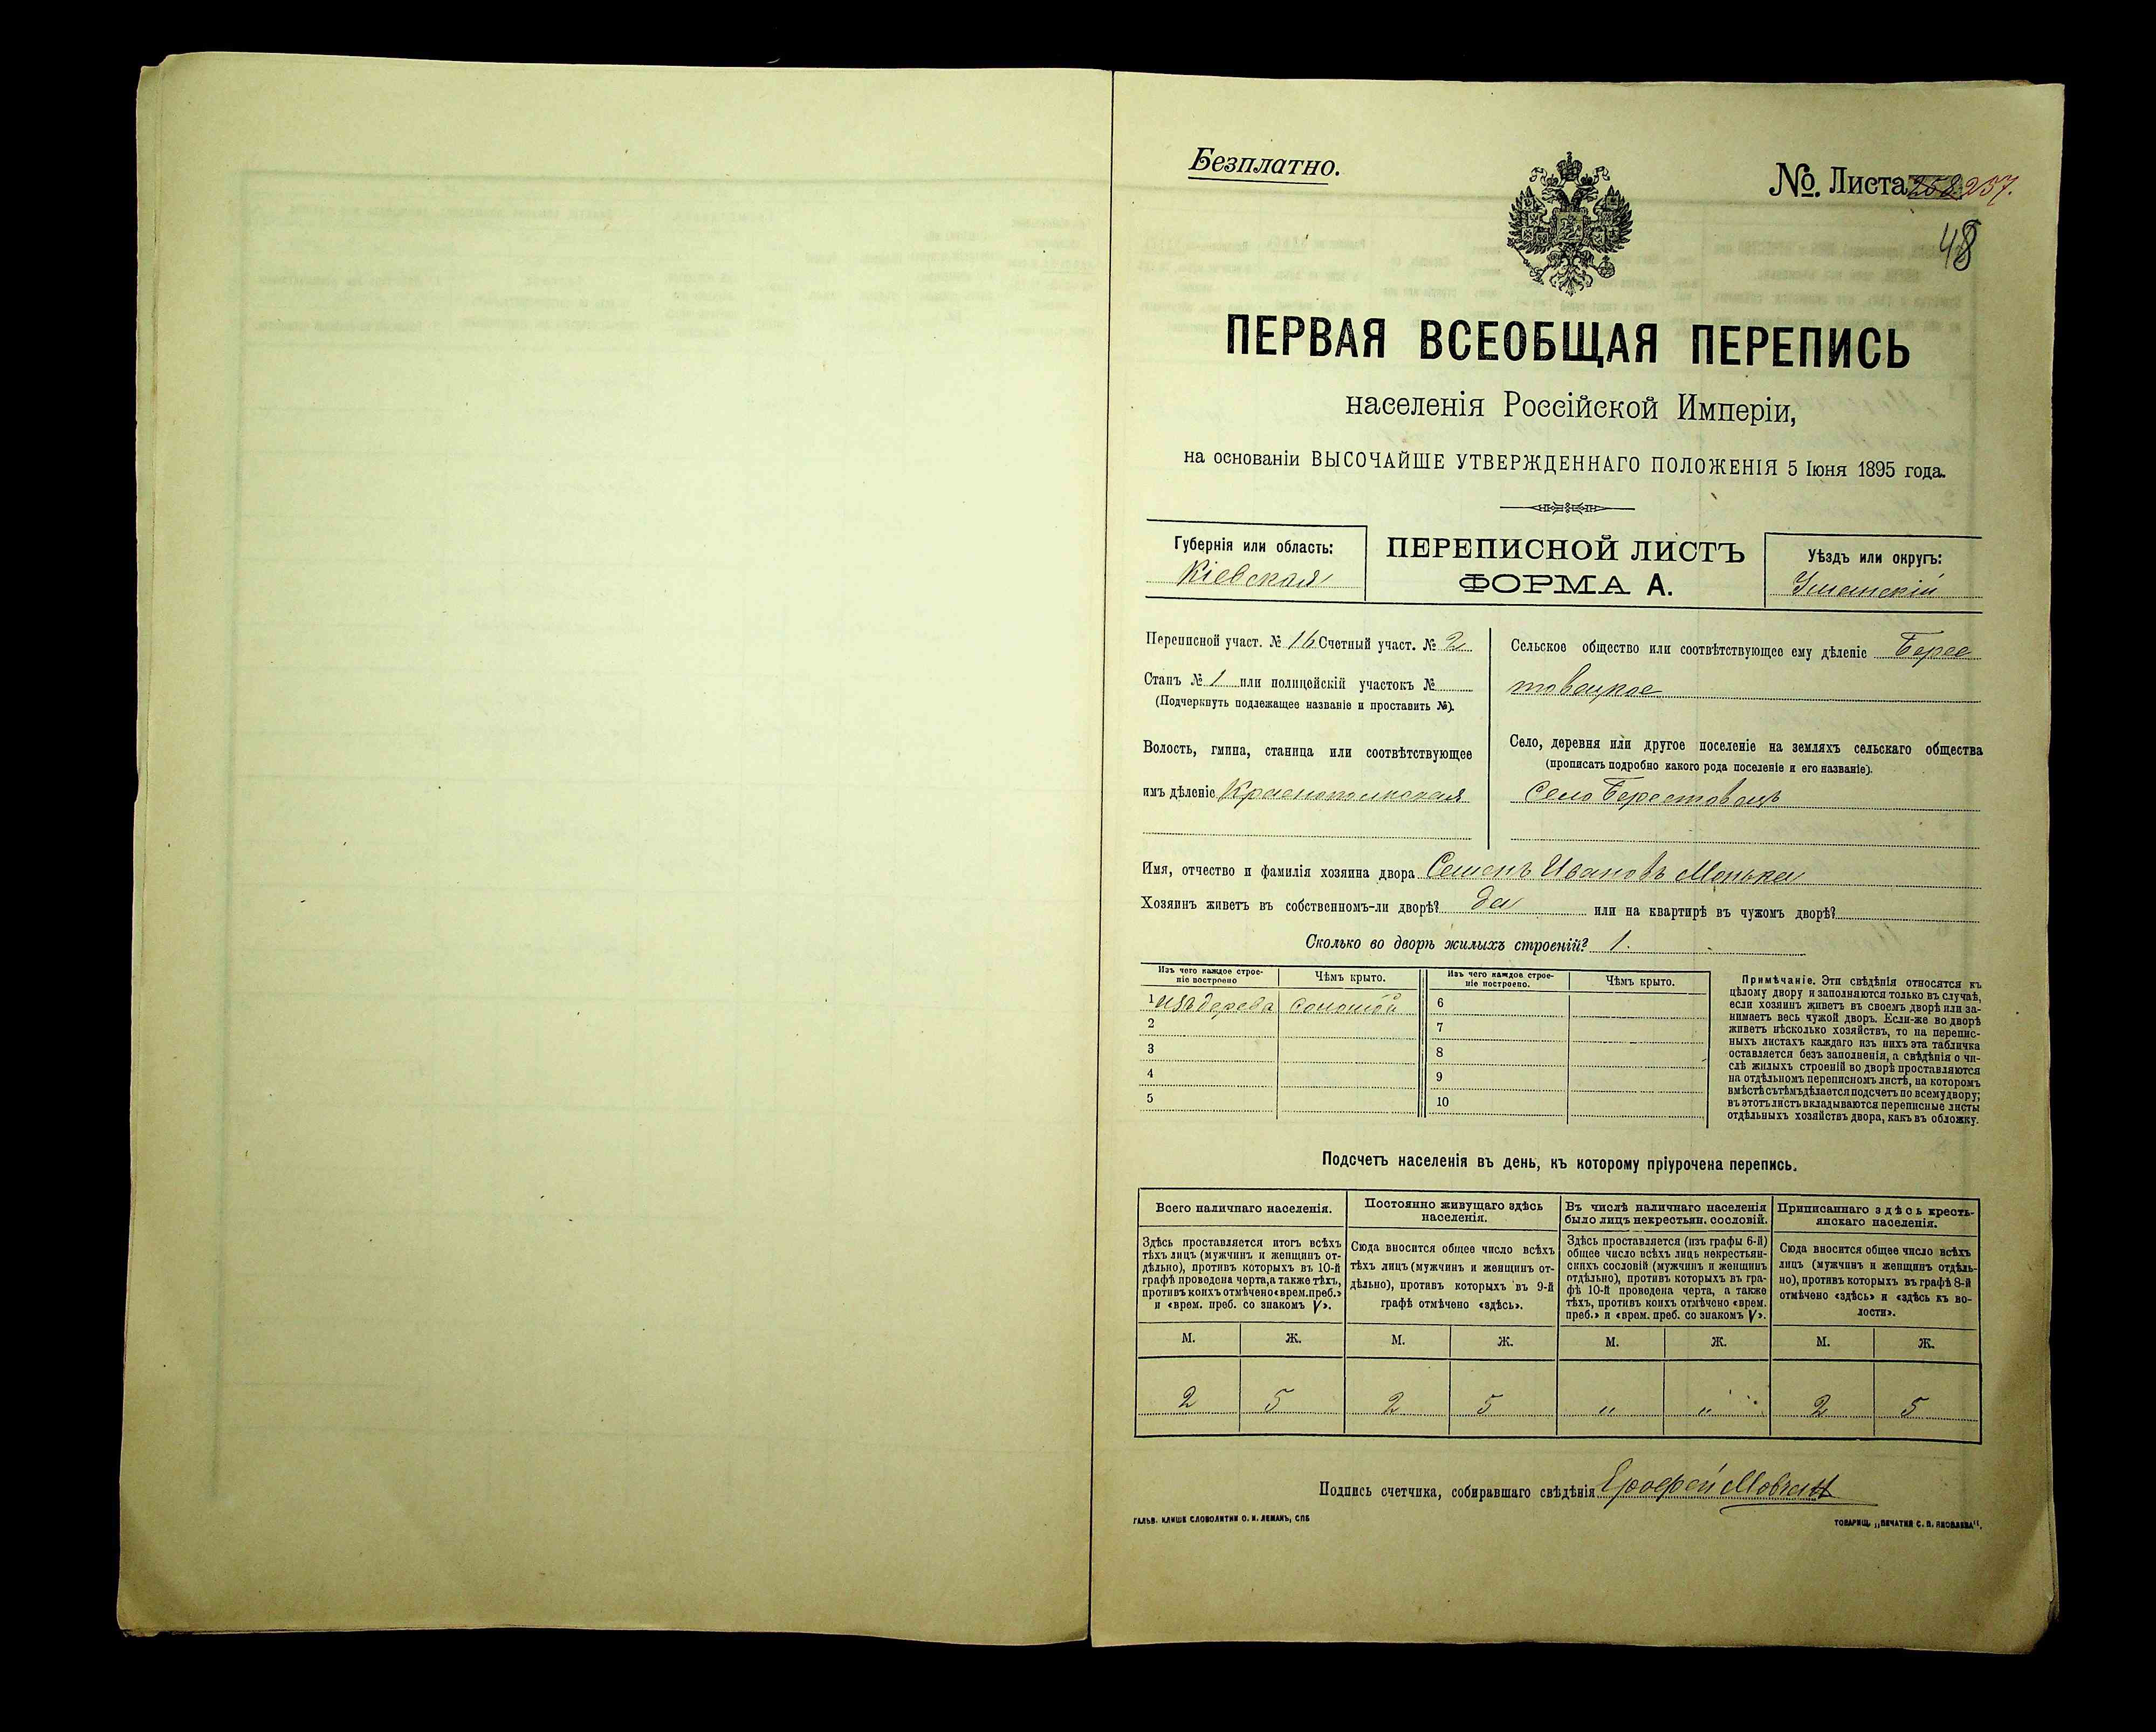 Безплатно.
№. Листа 258 257.
48
ПЕРВАЯ ВСЕОБЩАЯ ПЕРЕПИСЬ
населенія Россійской Имперіи,
на основаніи ВЫСОЧАЙШЕ УТВЕРЖДЕННАГО ПОЛОЖЕНІЯ 5 Іюня 1895 года.
Губернія или область:
Кіевская
ПЕРЕПИСНОЙ ЛИСТЪ
ФОРМА А.
Уѣздъ или округъ:
Уманскій
Переписной участ. № 16 Счетный участ. № 2
Станъ № 1 или полицейскій участокъ №
(Подчеркнуть подлежащее названіе и проставить №).
Волость, гмина, станица или соотвѣтствующее
имъ дѣленіе Краснопольская
Сельское общество или соотвѣтствующее ему дѣленіе Берес
товецкое
Село, деревня или другое поселеніе на земляхъ сельскаго общества
(прописать подробно какого рода поселеніе и его названіе).
Село Берестовецъ
Имя, отчество и фамилія хозяина двора Семенъ Ивановъ Монька
Хозяинъ живетъ въ собственномъ-ли дворѣ? да или на квартирѣ въ чужомъ дворѣ?
Сколько во дворѣ жилыхъ строеній? 1.
Изъ чего каждое строе-
ніе построено
Чѣмъ крыто.
Изъ чего каждое строе-
ніе построено.
Чѣмъ крыто.
1 изъ дерева соломой 6
2 7
3 8
4 9
5 10
Примѣчаніе. Эти свѣдѣнія относятся къ
цѣлому двору и заполняются только въ случаѣ,
если хозяинъ живетъ въ своемъ дворѣ или за-
нимаетъ весь чужой дворъ. Если-же во дворѣ
живетъ нѣсколько хозяйствъ, то на перепис-
ныхъ листахъ каждаго изъ нихъ эта табличка
оставляется безъ заполненія, а свѣдѣнія о чи-
слѣ жилыхъ строеній во дворѣ проставляются
на отдѣльномъ переписномъ листѣ, на которомъ
вмѣстѣ съ тѣмъ дѣлается подсчетъ по всему двору;
въ этотъ листъ вкладываются переписные листы
отдѣльныхъ хозяйствъ двора, какъ въ обложку.
Подсчетъ населенія въ день, къ которому пріурочена перепись.
Всего наличнаго населенія.
Здѣсь проставляется итогъ всѣхъ
тѣхъ лицъ (мужчинъ и женщинъ от-
дѣльно), противъ которыхъ въ 10-й
графѣ проведена черта, а также тѣхъ,
противъ коихъ отмѣчено «врем. преб.»
и «врем. преб. со знакомъ V».
Постоянно живущаго здѣсь
населенія.
Сюда вносится общее число всѣхъ
тѣхъ лицъ (мужчинъ и женщинъ от-
дѣльно), противъ которыхъ въ 9-й
графѣ отмѣчено «здѣсь».
Въ числѣ наличнаго населенія
было лицъ некрестьян. сословій.
Здѣсь проставляется (изъ графы 6-й)
общее число всѣхъ лицъ некрестьян-
скихъ сословій (мужчинъ и женщинъ
отдѣльно), противъ которыхъ въ гра-
фѣ 10-й проведена черта, а также
тѣхъ, противъ коихъ отмѣчено «врем.
преб.» и «врем. преб. со знакомъ V».
Приписаннаго здѣсь кресть-
янскаго населенія.
Сюда вносится общее число всѣхъ
лицъ (мужчинъ и женщинъ отдѣль-
но), противъ которыхъ въ графѣ 8-й
отмѣчено «здѣсь» и «здѣсь къ во-
лости».
М. Ж. М. Ж. М. Ж. М. Ж.
2 5 2 5 " " 2 5
Подпись счетчика, собиравшаго свѣдѣнія Ерофей Мовчан
ГАЛЬВ. КЛИШЕ СЛОВОЛИТНИ О. И. ЛЕМАНЪ, СПБ
ТОВАРИЩ. „ПЕЧАТНЯ С. П. ЯКОВЛЕВА“.